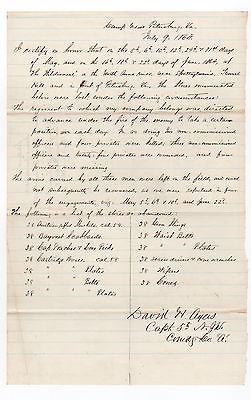 Camp near Petersburg, Va.
July 9, 1864.
I certify on honor that on the 5th, 6th, 10th, 12th, and days
of May, and on the 16th, & 22nd days of June 1864, at
the Wilderness, near Spottsylvania,
and in front of Petersburg Va. the stores enumerated
below were lost under the following circumstances:
The regiment to which my company belongs was directed
to advance under the fire of the enemy to take a certain
position on each day. In so doing non commissioned
officers and four privates were killed, three non commissioned
officers and twenty five privates were wounded, and four
privates were missing.
The arms carried by all these men were left on the field, and could
not subsequently be recovered, as we were repulsed in four
of the engagements, viz, May 5th, & 10th, and June 22nd.
The following is a list of the stores so abandoned:
38 Muskets cal. 58
38 Bayonet Scabbards
38 Cap Pouches & Cone Picks
38 Cartridge Boxes cal. 58
38 " " Plates
38 " " Belts
38 " " Plates
38 Gun Slings
38 Waist Belts
38 " " Plates
38 Screw drivers & cone wrenches
38 Wipers
38 Cones
David H. Ayers
Capt.
Comdg Co. A.